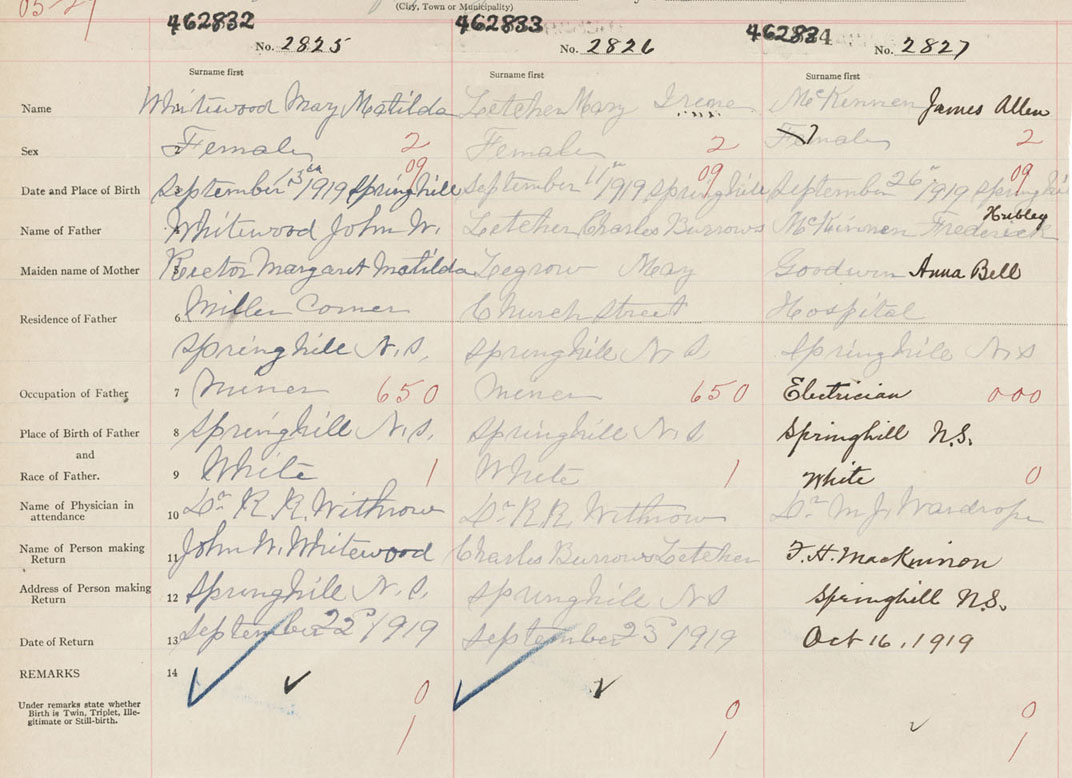 (City, Town or Municipality)
462832 462833 462834
No. 2825 No. 2826 No. 2827
Surname first Surname first Surname first
Name 1 Whitewood Mary Matilda Letcher Mary Irene McKennen James Allen
Sex 2 Female 2 Female 2 Female 2
09 09 09
Date and Place of Birth 3 September 13th 1919 Springhill September 11th 1919 Springhill September 26th 1919 Springhill
Name of Father Whitewood John W. Letcher Charles Burrows McKinnen Frederick Hubley
Maiden name of Mother 5 Rector Margaret Matilda Legrow Mary Goodwin Anna Bell
Residence of Father 6 Miller Corner Church Street Hospital
Springhill N.S. Springhill N.S Springhill N.S
Occupation of Father 7 Miner 650 Miner 650 Electrician 000
Place of Birth of Father 8 Springhill N.S. Springhill N.S Springhill N.S.
and
Race of Father. 9 White 1 White 1 White 0
Name of Physician in attendance 10 Dr R. R. Withrow Dr R. R. Withrow Dr M. J. Wardrope
Name of Person making Return 11 John W. Whitewood Charles Burrows Letcher F. H. MacKinnon
Address of Person making Return 12 Springhill N.S. Springhill N S Springhill N.S.
Date of Return 13 September 22d 1919 September 23d 1919 Oct 16, 1919
REMARKS 14
Under remarks state whether
Birth is Twin, Triplet, Ille-
gitimate or Still-birth.
0 0 0
1 1 1